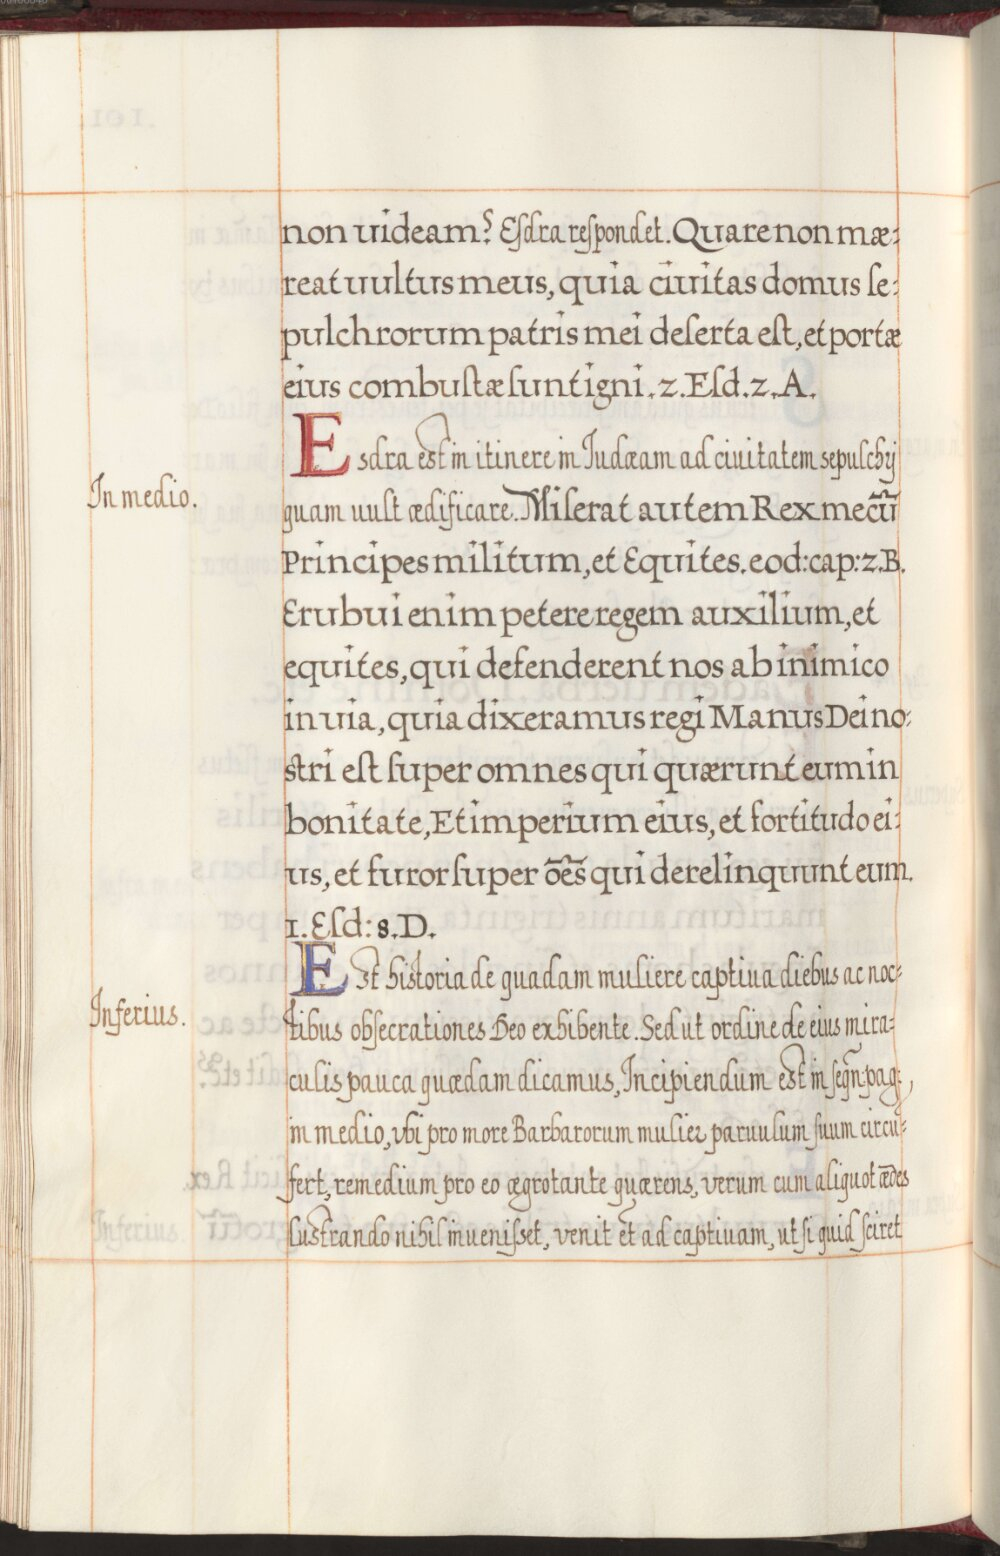 non uideam? Esdra respondet. Quare non mæ-
reat uultus meus, quia ciuitas domus se-
pulchrorum patris mei deserta est, et portæ
eius combustæ sunt igni. 2. Esd. 2. A.
Esdra est in itinere in Iudæam ad ciuitatem sepulchrj
In medio.
quam uult ædificare. Miserat autem Rex mecū
Principes militum, et Equites. eod: cap: 2. B.
Erubui enim petere regem auxilium, et
equites, qui defenderent nos ab inimico
in uia, quia dixeramus regi Manus Dei no-
stri est super omnes qui quærunt eum in
bonitate, Et imperium eius, et fortitudo ei-
us, et furor super oēs qui derelinquunt eum.
1. Esd: 8. D.
Est historia de quadam muliere captiua diebus ac noc-
Inferius.
tibus obsecrationes Deo exhibente. Sed ut ordine de eius mira-
culis pauca quædam dicamus, Incipiendum est in seqñ. pag:,
in medio, vbi pro more Barbarorum mulier paruulum suum circu-
fert, remedium pro eo ægrotante quærens, verum cum aliquot ædes
lustrando nihil inuenisset, venit et ad captiuam, ut si quid sciret